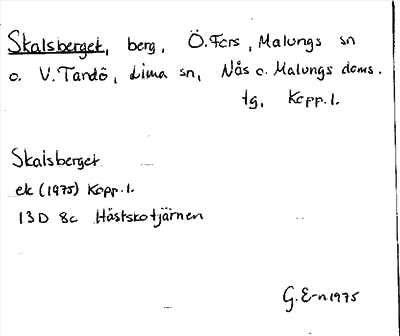 Skalsberget, berg, Ö. Fors, Malungs sn
o. V. Tandö, Lima sn, Nås o. Malungs doms.
tg, Kopp. l.
Skalsberget
ek (1975) Kopp. l.
13D 8c Hästskotjärnen
G. E-n 1975